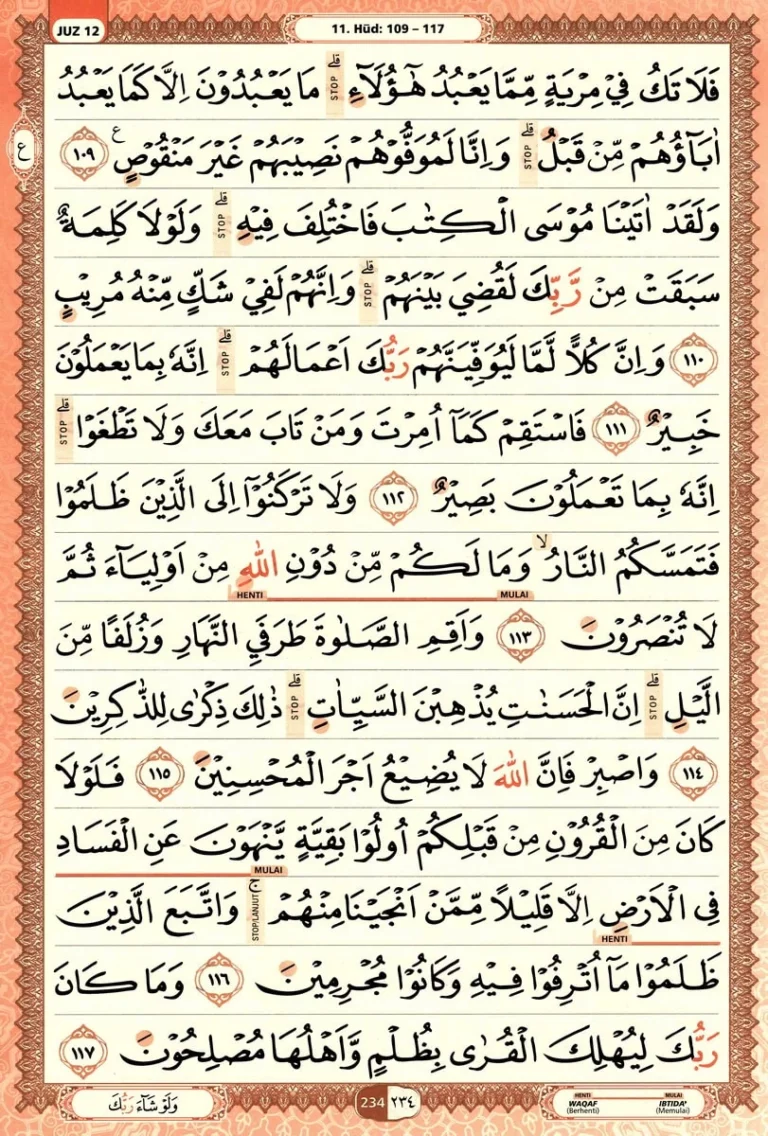 JUZ 12
11. Hūd: 109 – 117
فَلَا تَكُ فِيْ مِرْيَةٍ مِّمَّا يَعْبُدُ هٰٓؤُلَاۤءِ ۗ STOP مَا يَعْبُدُوْنَ اِلَّا كَمَا يَعْبُدُ
ع
اٰبَاۤؤُهُمْ مِّنْ قَبْلُ ۗ STOP وَاِنَّا لَمُوَفُّوْهُمْ نَصِيْبَهُمْ غَيْرَ مَنْقُوْصٍ ࣖ ١٠٩
وَلَقَدْ اٰتَيْنَا مُوْسَى الْكِتٰبَ فَاخْتُلِفَ فِيْهِ ۗ STOP وَلَوْلَا كَلِمَةٌ
سَبَقَتْ مِنْ رَّبِّكَ لَقُضِيَ بَيْنَهُمْ ۗ STOP وَاِنَّهُمْ لَفِيْ شَكٍّ مِّنْهُ مُرِيْبٍ
١١٠ وَاِنَّ كُلًّا لَّمَّا لَيُوَفِّيَنَّهُمْ رَبُّكَ اَعْمَالَهُمْ ۗ STOP اِنَّهٗ بِمَا يَعْمَلُوْنَ
خَبِيْرٌ ١١١ فَاسْتَقِمْ كَمَآ اُمِرْتَ وَمَنْ تَابَ مَعَكَ وَلَا تَطْغَوْا ۗ STOP
اِنَّهٗ بِمَا تَعْمَلُوْنَ بَصِيْرٌ ١١٢ وَلَا تَرْكَنُوْٓا اِلَى الَّذِيْنَ ظَلَمُوْا
فَتَمَسَّكُمُ النَّارُ ۙ وَمَا لَكُمْ مِّنْ دُوْنِ اللّٰهِ مِنْ اَوْلِيَاۤءَ ثُمَّ
MULAI HENTI
لَا تُنْصَرُوْنَ ١١٣ وَاَقِمِ الصَّلٰوةَ طَرَفَيِ النَّهَارِ وَزُلَفًا مِّنَ
الَّيْلِ ۗ STOP اِنَّ الْحَسَنٰتِ يُذْهِبْنَ السَّيِّاٰتِ ۗ STOP ذٰلِكَ ذِكْرٰى لِلذّٰكِرِيْنَ
١١٤ وَاصْبِرْ فَاِنَّ اللّٰهَ لَا يُضِيْعُ اَجْرَ الْمُحْسِنِيْنَ ١١٥ فَلَوْلَا
كَانَ مِنَ الْقُرُوْنِ مِنْ قَبْلِكُمْ اُولُوْا بَقِيَّةٍ يَّنْهَوْنَ عَنِ الْفَسَادِ
MULAI
فِى الْاَرْضِ اِلَّا قَلِيْلًا مِّمَّنْ اَنْجَيْنَا مِنْهُمْ ۚ STOP/LANJUT وَاتَّبَعَ الَّذِيْنَ
HENTI
ظَلَمُوْا مَآ اُتْرِفُوْا فِيْهِ وَكَانُوْا مُجْرِمِيْنَ ١١٦ وَمَا كَانَ
رَبُّكَ لِيُهْلِكَ الْقُرٰى بِظُلْمٍ وَّاَهْلُهَا مُصْلِحُوْنَ ١١٧
وَلَوْ شَاۤءَ رَبُّكَ
234 ٢٣٤
HENTI MULAI
WAQAF IBTIDA'
(Berhenti) (Memulai)